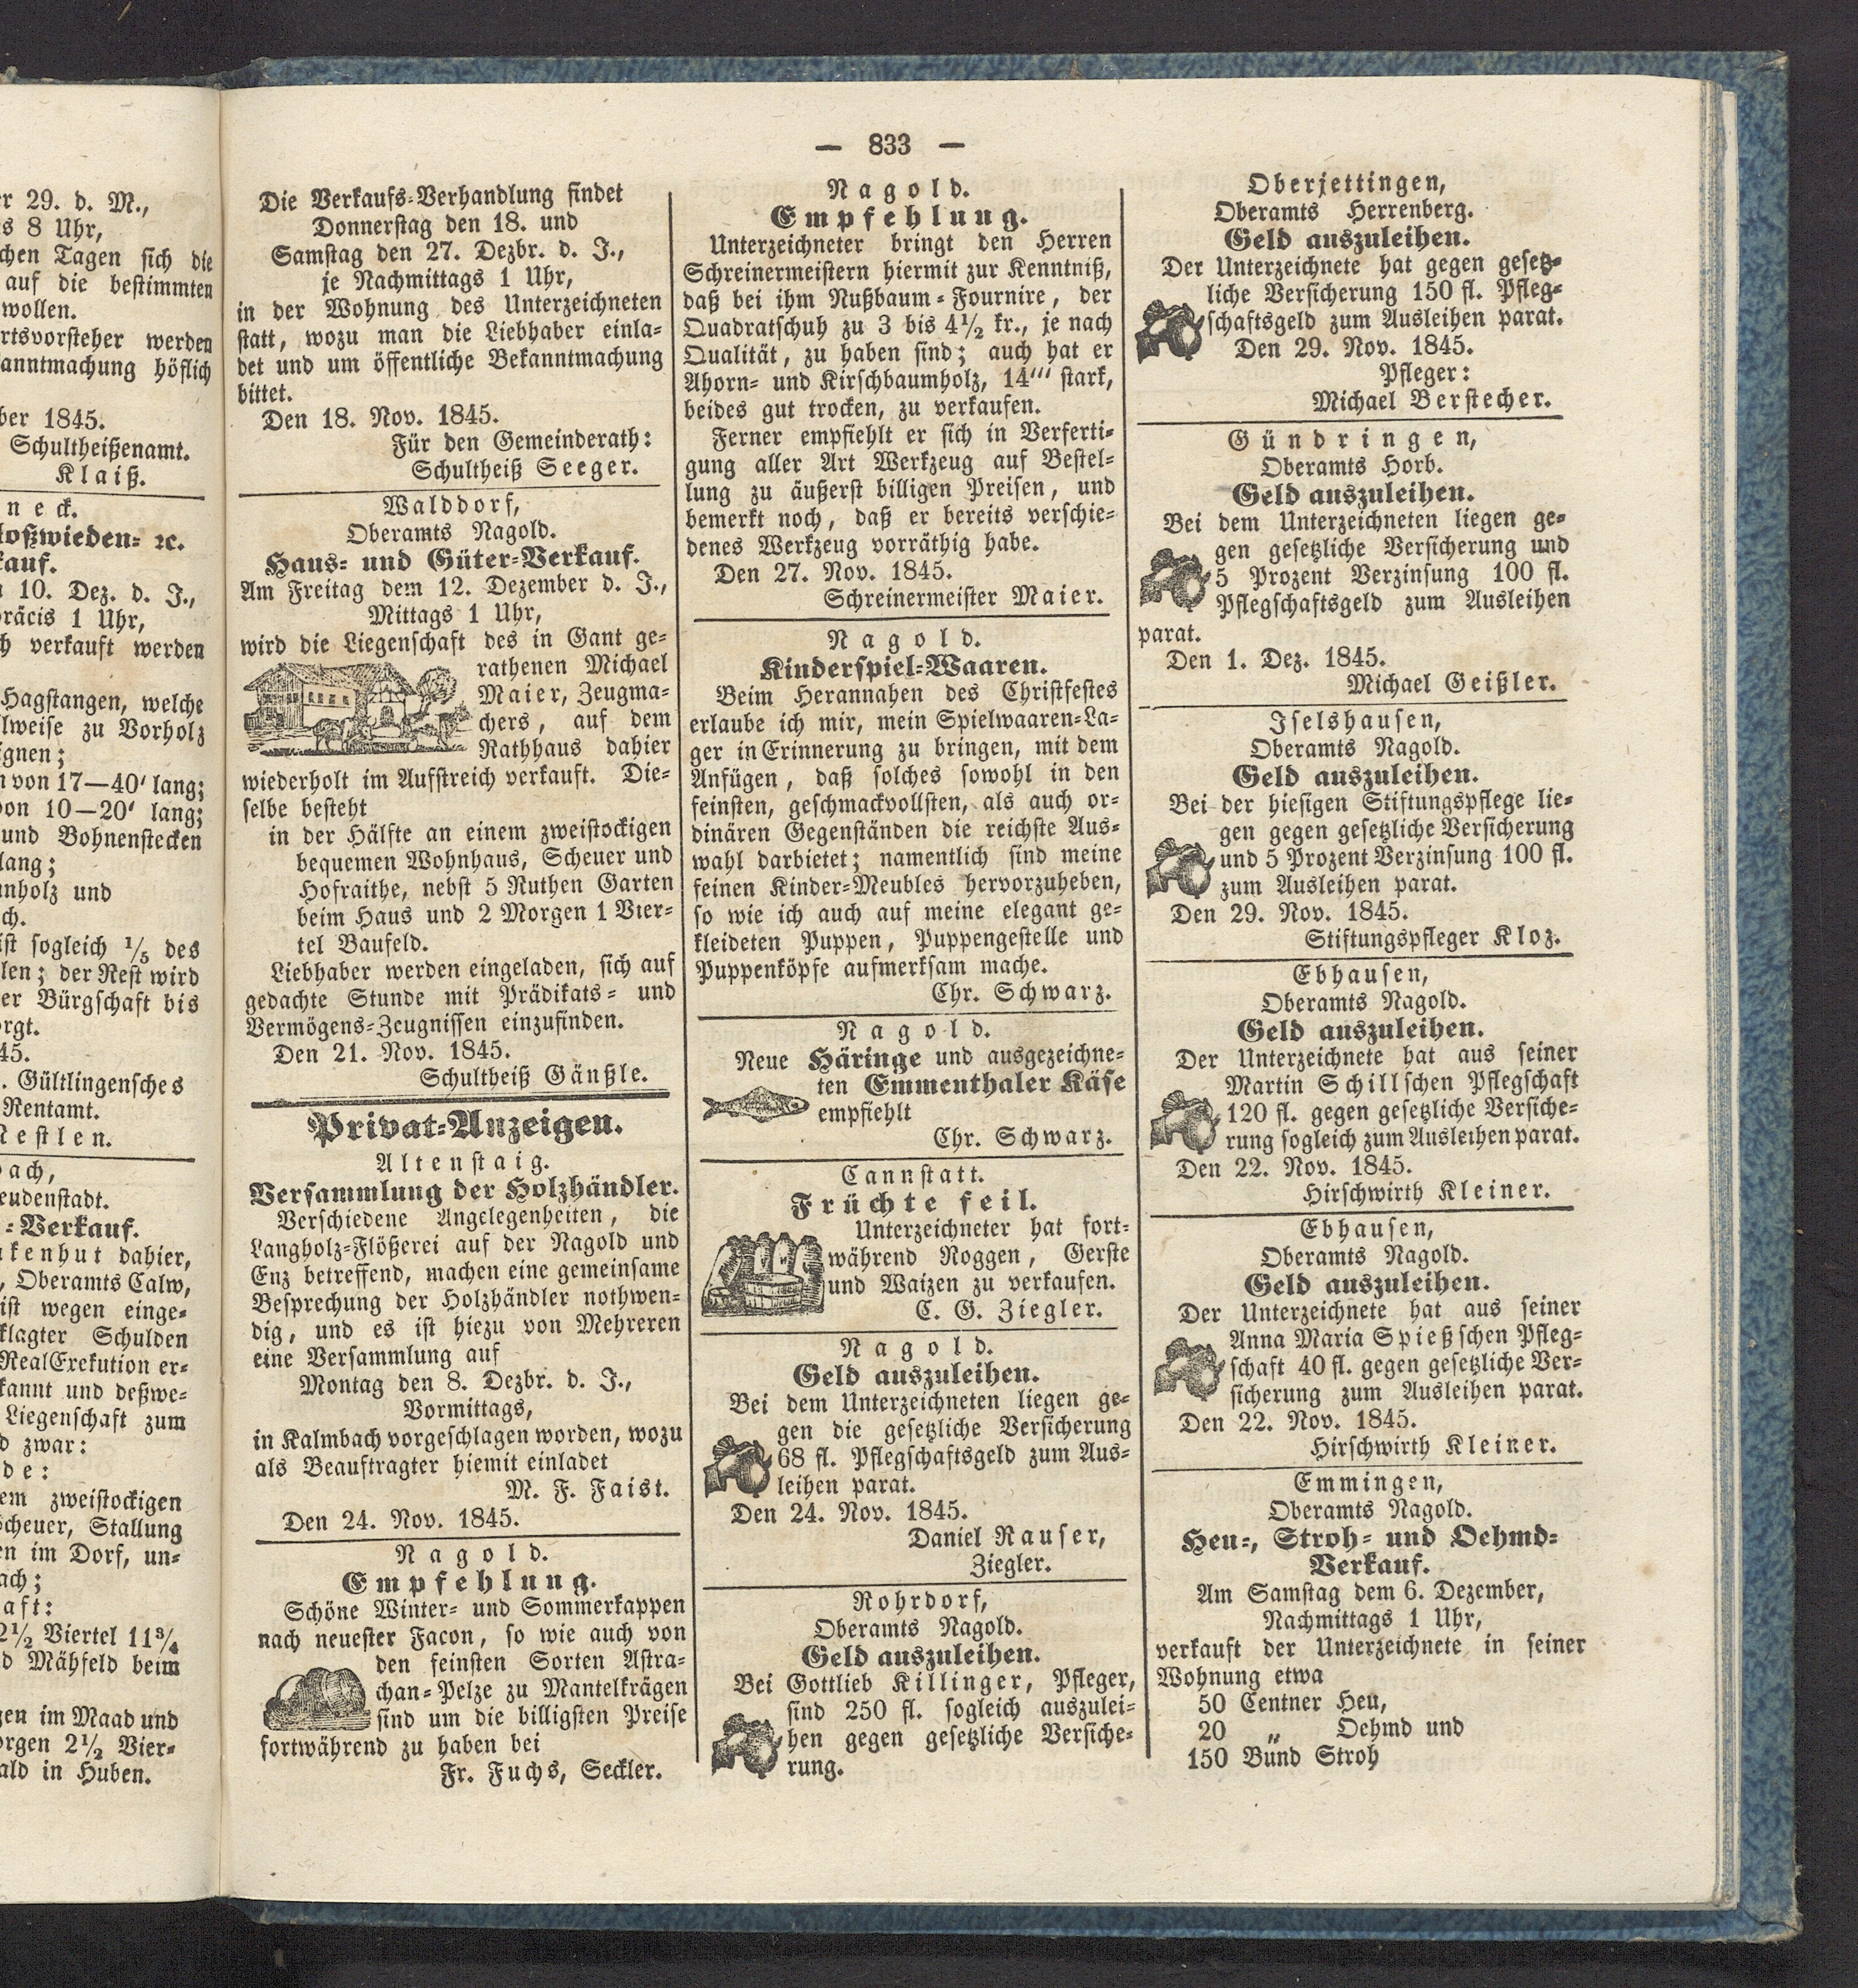 er 29. d. M.,
s 8 Uhr,
chen Tagen sich die
auf die bestimmten
wollen.
rtsvorsteher werden
anntmachung höflich
ber 1845.
Schultheißenamt.
Klaiß.
neck.
loßwieden- ꝛc.
kauf.
10. Dez. d. J.,
präcis 1 Uhr,
h verkauft werden
Hagstangen, welche
lweise zu Vorholz
ignen;
n von 17—40' lang;
von 10—20' lang;
und Bohnenstecken
lang;
nholz und
ch.
ist sogleich 1/5 des
len; der Rest wird
er Bürgschaft bis
orgt.
45.
. Gültlingensches
Rentamt.
Nestlen.
bach,
eudenstadt.
-Verkauf.
kenhut dahier,
, Oberamts Calw,
ist wegen einge-
klagter Schulden
RealExekution er-
kannt und deßwe-
Liegenschaft zum
d zwar:
de:
em zweistockigen
Scheuer, Stallung
en im Dorf, un-
ach;
aft:
2½ Viertel 11¾
d Mähfeld beim
gen im Maad und
orgen 2½ Vier-
ald in Huben.
— 833 —
Die Verkaufs-Verhandlung findet
Donnerstag den 18. und
Samstag den 27. Dezbr. d. J.,
je Nachmittags 1 Uhr,
in der Wohnung des Unterzeichneten
statt, wozu man die Liebhaber einla-
det und um öffentliche Bekanntmachung
bittet.
Den 18. Nov. 1845.
Für den Gemeinderath:
Schultheiß Seeger.
Walddorf,
Oberamts Nagold.
Haus- und Güter-Verkauf.
Am Freitag dem 12. Dezember d. J.,
Mittags 1 Uhr,
wird die Liegenschaft des in Gant ge-
rathenen Michael
Maier, Zeugma-
chers, auf dem
Rathhaus dahier
wiederholt im Aufstreich verkauft. Die-
selbe besteht
in der Hälfte an einem zweistockigen
bequemen Wohnhaus, Scheuer und
Hofraithe, nebst 5 Ruthen Garten
beim Haus und 2 Morgen 1 Vier-
tel Baufeld.
Liebhaber werden eingeladen, sich auf
gedachte Stunde mit Prädikats- und
Vermögens-Zeugnissen einzufinden.
Den 21. Nov. 1845.
Schultheiß Gänßle.
Privat-Anzeigen.
Altenstaig.
Versammlung der Holzhändler.
Verschiedene Angelegenheiten, die
Langholz-Flößerei auf der Nagold und
Enz betreffend, machen eine gemeinsame
Besprechung der Holzhändler nothwen-
dig, und es ist hiezu von Mehreren
eine Versammlung auf
Montag den 8. Dezbr. d. J.,
Vormittags,
in Kalmbach vorgeschlagen worden, wozu
als Beauftragter hiemit einladet
M. F. Faist.
Den 24. Nov. 1845.
Nagold.
Empfehlung.
Schöne Winter- und Sommerkappen
nach neuester Facon, so wie auch von
den feinsten Sorten Astra-
chan-Pelze zu Mantelkrägen
sind um die billigsten Preise
fortwährend zu haben bei
Fr. Fuchs, Seckler.
Nagold.
Empfehlung.
Unterzeichneter bringt den Herren
Schreinermeistern hiermit zur Kenntniß,
daß bei ihm Nußbaum-Fournire, der
Quadratschuh zu 3 bis 4½ kr., je nach
Qualität, zu haben sind; auch hat er
Ahorn- und Kirschbaumholz, 14''' stark,
beides gut trocken, zu verkaufen.
Ferner empfiehlt er sich in Verferti-
gung aller Art Werkzeug auf Bestel-
lung zu äußerst billigen Preisen, und
bemerkt noch, daß er bereits verschie-
denes Werkzeug vorräthig habe.
Den 27. Nov. 1845.
Schreinermeister Maier.
Nagold.
Kinderspiel-Waaren.
Beim Herannahen des Christfestes
erlaube ich mir, mein Spielwaaren-La-
ger in Erinnerung zu bringen, mit dem
Anfügen, daß solches sowohl in den
feinsten, geschmackvollsten, als auch or-
dinären Gegenständen die reichste Aus-
wahl darbietet; namentlich sind meine
feinen Kinder-Meubles hervorzuheben,
so wie ich auch auf meine elegant ge-
kleideten Puppen, Puppengestelle und
Puppenköpfe aufmerksam mache.
Chr. Schwarz.
Nagold.
Neue Häringe und ausgezeichne-
ten Emmenthaler Käse
empfiehlt
Chr. Schwarz.
Cannstatt.
Früchte feil.
Unterzeichneter hat fort-
während Roggen, Gerste
und Waizen zu verkaufen.
C. G. Ziegler.
Nagold.
Geld auszuleihen.
Bei dem Unterzeichneten liegen ge-
gen die gesetzliche Versicherung
68 fl. Pflegschaftsgeld zum Aus-
leihen parat.
Den 24. Nov. 1845.
Daniel Rauser,
Ziegler.
Rohrdorf,
Oberamts Nagold.
Geld auszuleihen.
Bei Gottlieb Killinger, Pfleger,
sind 250 fl. sogleich auszulei-
hen gegen gesetzliche Versiche-
rung.
Oberjettingen,
Oberamts Herrenberg.
Geld auszuleihen.
Der Unterzeichnete hat gegen gesetz-
liche Versicherung 150 fl. Pfleg-
schaftsgeld zum Ausleihen parat.
Den 29. Nov. 1845.
Pfleger:
Michael Berstecher.
Gündringen,
Oberamts Horb.
Geld auszuleihen.
Bei dem Unterzeichneten liegen ge-
gen gesetzliche Versicherung und
5 Prozent Verzinsung 100 fl.
Pflegschaftsgeld zum Ausleihen
parat.
Den 1. Dez. 1845.
Michael Geißler.
Iselshausen,
Oberamts Nagold.
Geld auszuleihen.
Bei der hiesigen Stiftungspflege lie-
gen gegen gesetzliche Versicherung
und 5 Prozent Verzinsung 100 fl.
zum Ausleihen parat.
Den 29. Nov. 1845.
Stiftungspfleger Kloz.
Ebhausen,
Oberamts Nagold.
Geld auszuleihen.
Der Unterzeichnete hat aus seiner
Martin Schillschen Pflegschaft
120 fl. gegen gesetzliche Versiche-
rung sogleich zum Ausleihen parat.
Den 22. Nov. 1845.
Hirschwirth Kleiner.
Ebhausen,
Oberamts Nagold.
Geld auszuleihen.
Der Unterzeichnete hat aus seiner
Anna Maria Spießschen Pfleg-
schaft 40 fl. gegen gesetzliche Ver-
sicherung zum Ausleihen parat.
Den 22. Nov. 1845.
Hirschwirth Kleiner.
Emmingen,
Oberamts Nagold.
Heu-, Stroh- und Oehmd-
Verkauf.
Am Samstag dem 6. Dezember,
Nachmittags 1 Uhr,
verkauft der Unterzeichnete in seiner
Wohnung etwa
50 Centner Heu,
20 „ Oehmd und
150 Bund Stroh